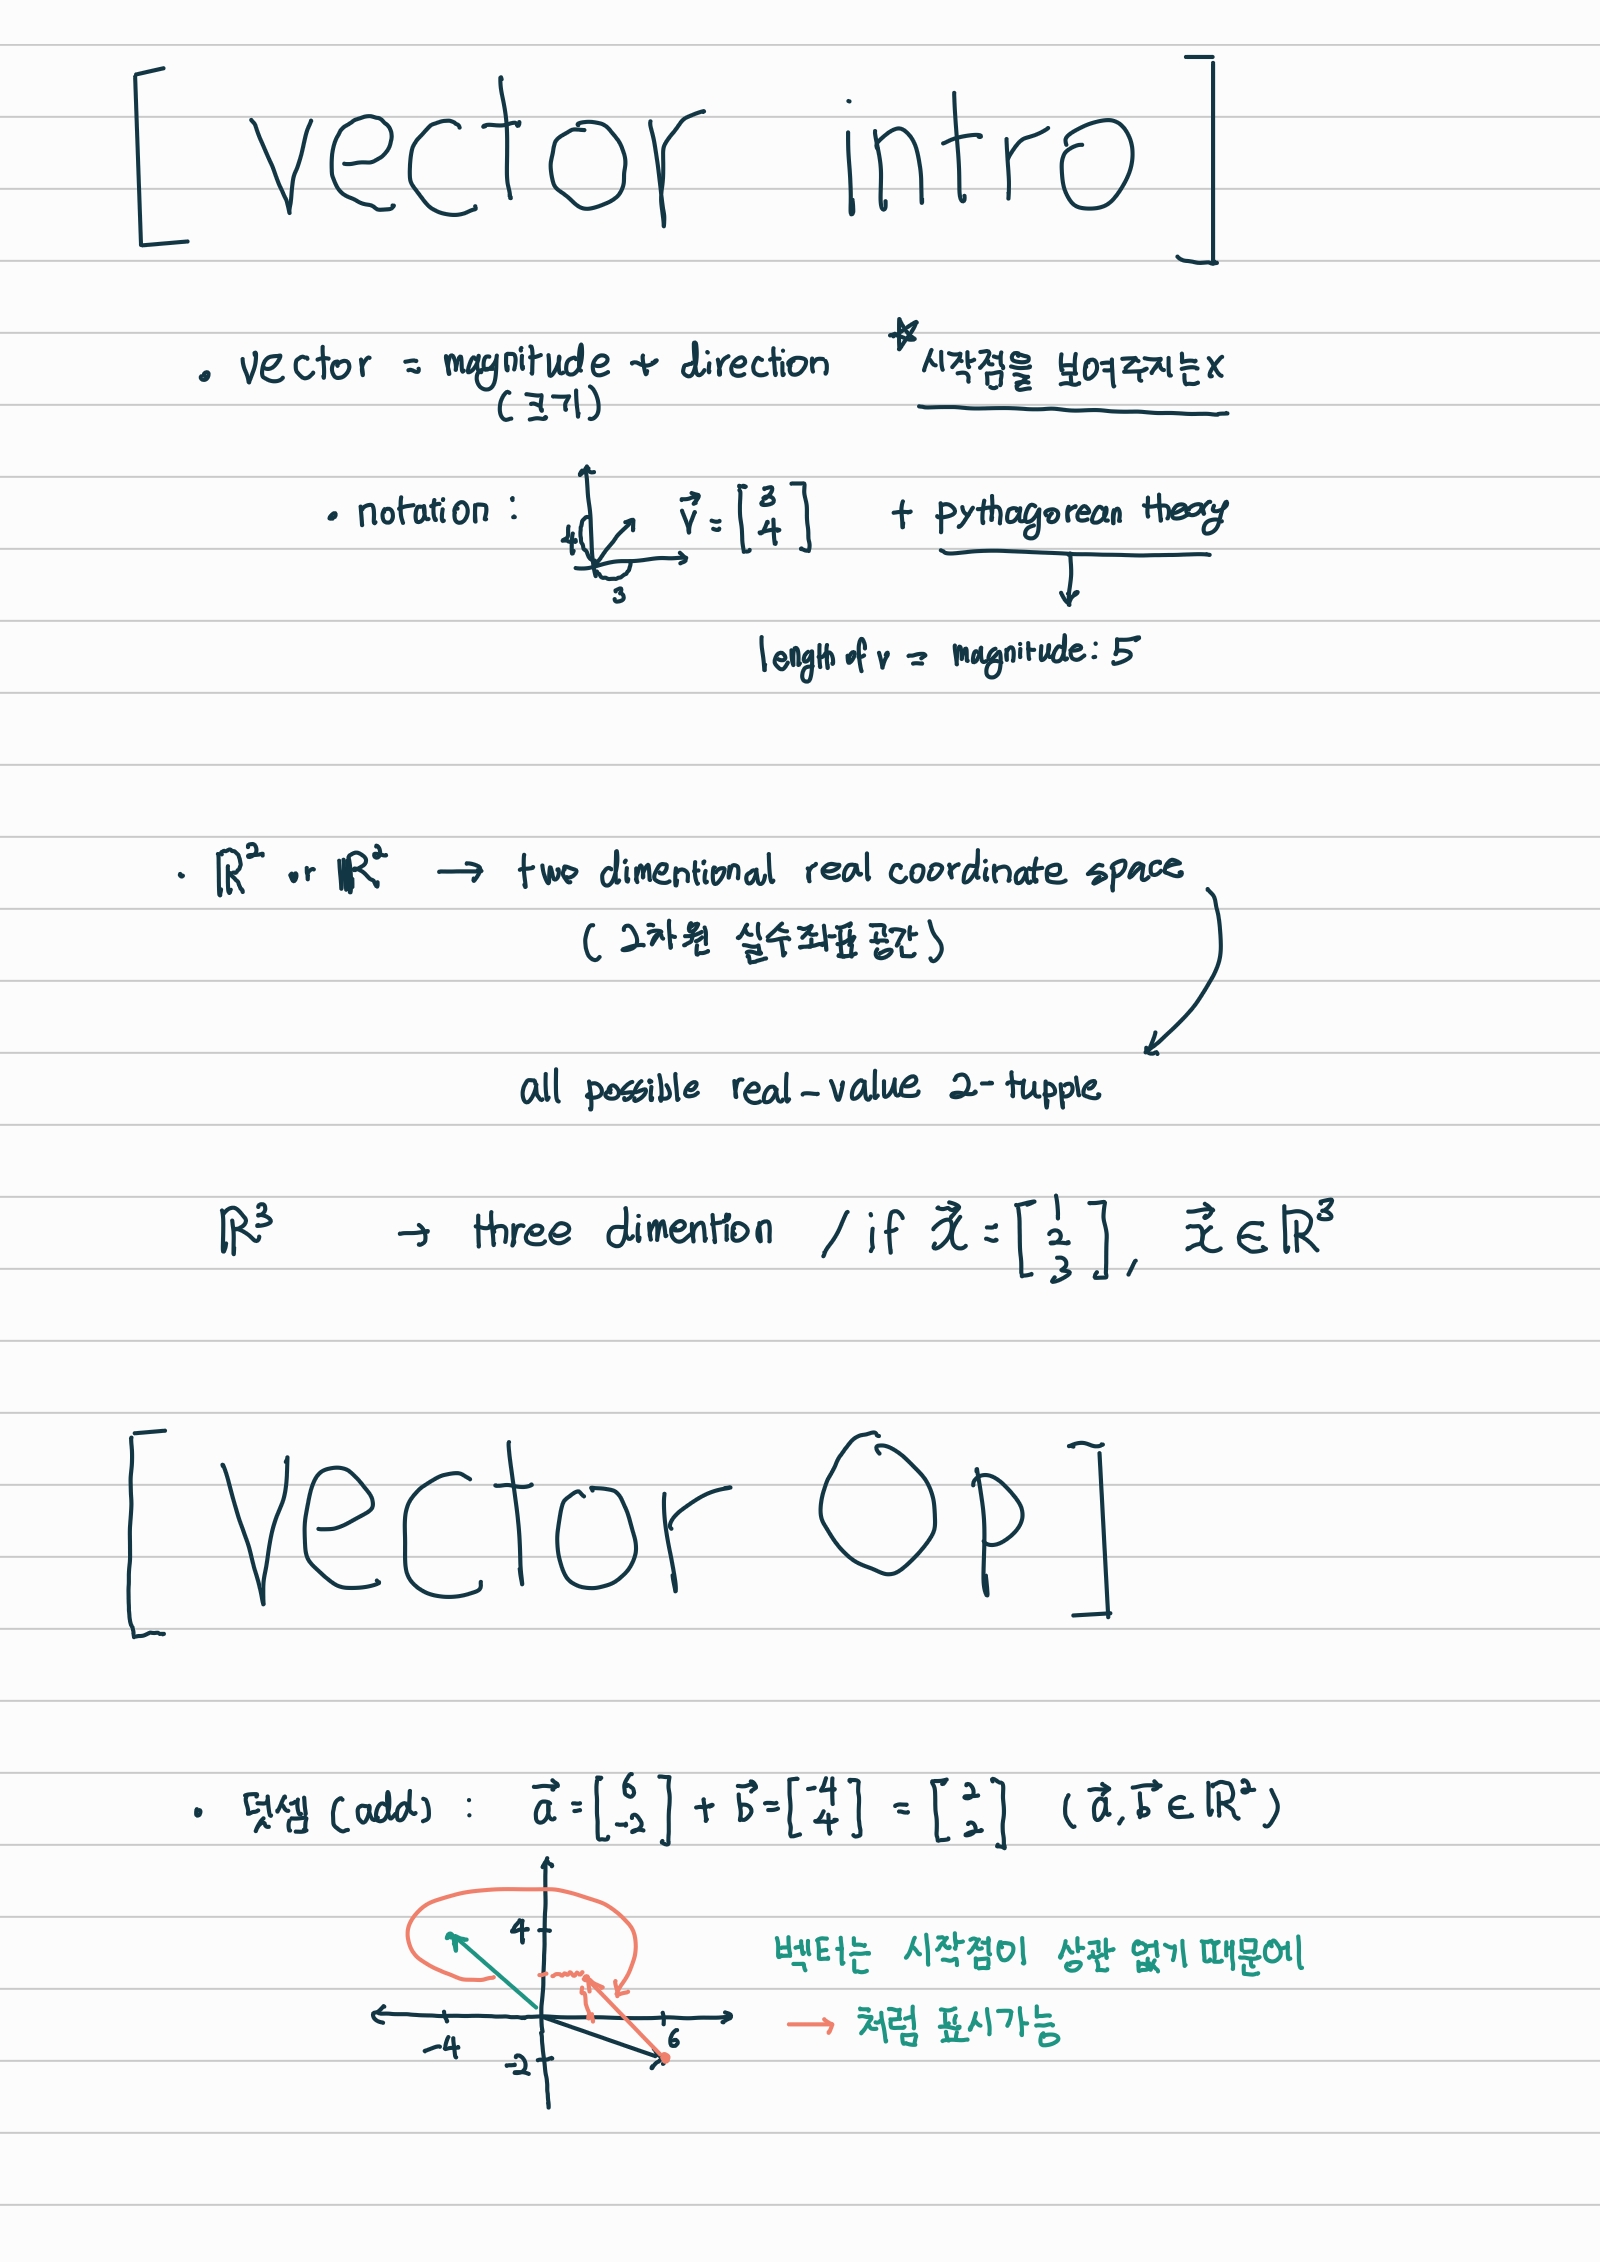 [ vector intro ]
• vector = magnitude + direction ☆ 시작점을 보여주지는x
(크기)
• notation : 4 3 v⃗ = [3 4] + pythagorean theory
length of v = magnitude: 5
• ℝ² or ℝ² → two dimentional real coordinate space
( 2차원 실수좌표 공간 )
all possible real-value 2-tupple
ℝ³ → three dimention / if x⃗ = [1 2 3], x⃗ ∈ ℝ³
[ Vector Op ]
• 덧셈 (add) : a⃗ = [6 -2] + b⃗ = [-4 4] = [2 2] (a⃗, b⃗ ∈ ℝ²)
4
벡터는 시작점이 상관 없기 때문에
→ 처럼 표시가능
-4 6
-2